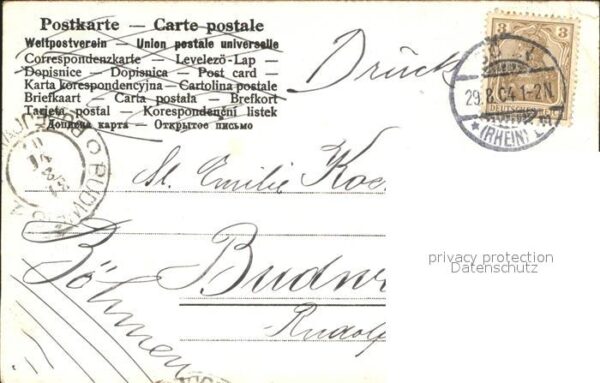 Postkarte — Carte postale
Weltpostverein — Union postale universelle
Correspondenzkarte — Levelező-Lap —
Dopisnice — Dopisnica — Post card —
Karta korespondencyjna — Cartolina postale
Briefkaart — Carta postala — Brefkort
Tarjeta postal — Korespondenční listek
Дописна карта — Открытое письмо
Drück
3 3
29.8.04.1-2N.
(RHEIN)
St. Emilie
Budw
Rudolf
Böhmen
privacy protection
Datenschutz